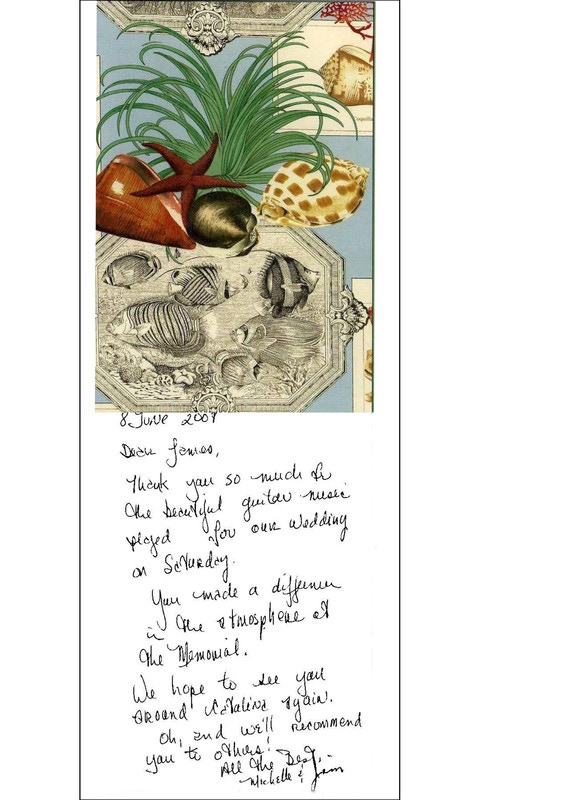 8 June 2009
Dear James,
Thank you so much for
the beautiful guitar music
played for our wedding
on Saturday.
You made a difference
in the atmosphere at
the Memorial.
We hope to see you
around Catalina again.
Oh, and we'll recommend
you to others!
All the Best,
Michelle & Jim